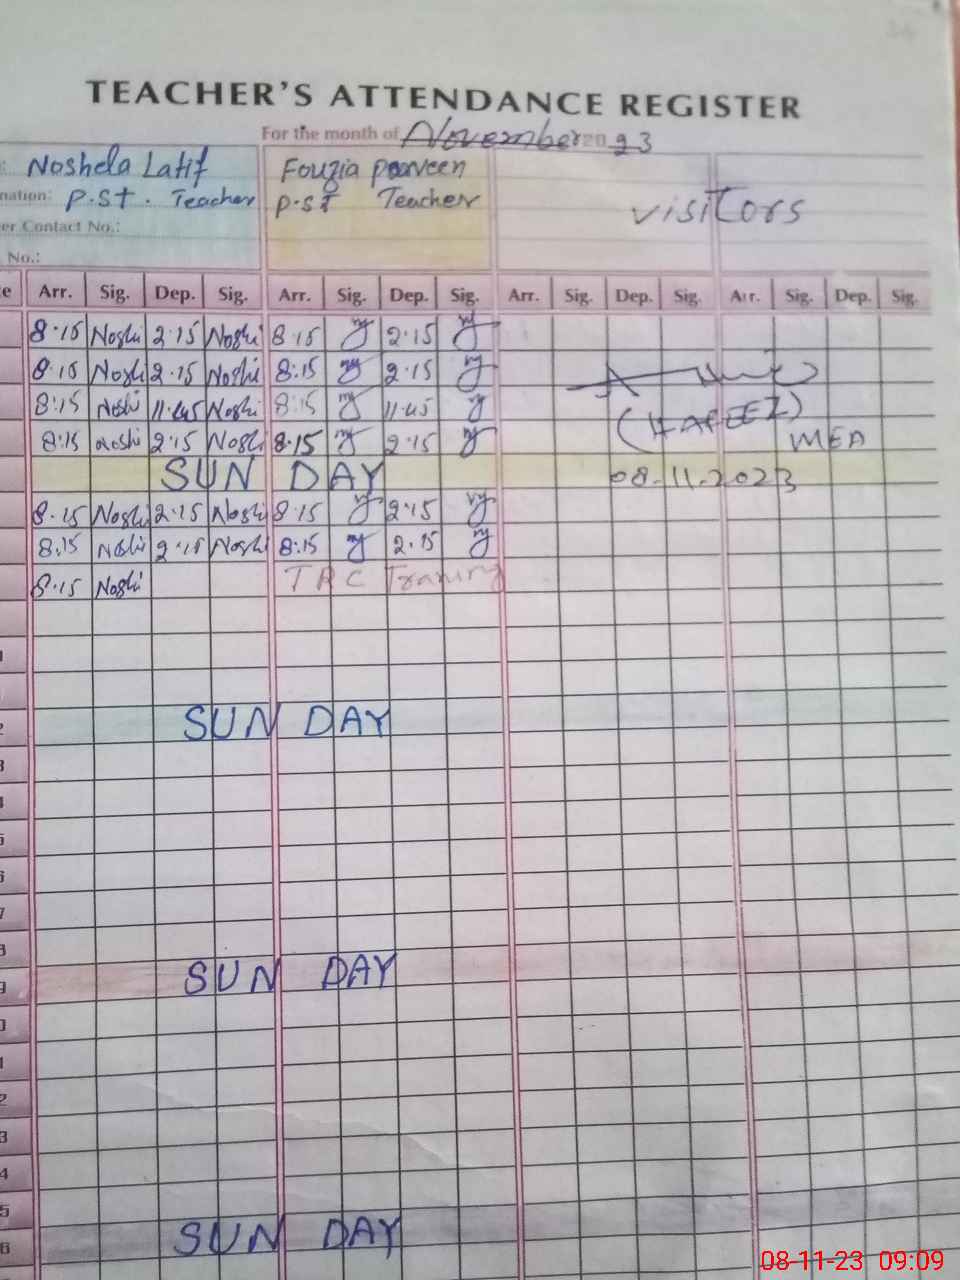 TEACHER'S ATTENDANCE REGISTER
For the month of November 2023
Noshela Latif Fouzia Parveen
nation: P.ST. Teacher P.ST Teacher visitors
er Contact No.:
No.:
e Arr. Sig. Dep. Sig. Arr. Sig. Dep. Sig. Arr. Sig. Dep. Sig. Arr. Sig. Dep. Sig.
8.15 Noshi 2.15 Noshi 8.15 2.15
8.15 Noshi 2.15 Noshi 8:15 2.15
8:15 Noshi 11.45 Noshi 8:15 11.45 (HAFEEZ)
8:15 Noshi 2:15 Noshi 8.15 2.15 MEA
SUN DAY 08.11.2023
8.15 Noshi 2.15 Noshi 8.15 2.15
8.15 Noshi 2.15 Noshi 8:15 2.15
8.15 Noshi TRC Training
1
2 SUN DAY
3
4
5
6
7
8
9 SUN DAY
0
1
2
3
4
5
6 SUN DAY
08-11-23 09:09